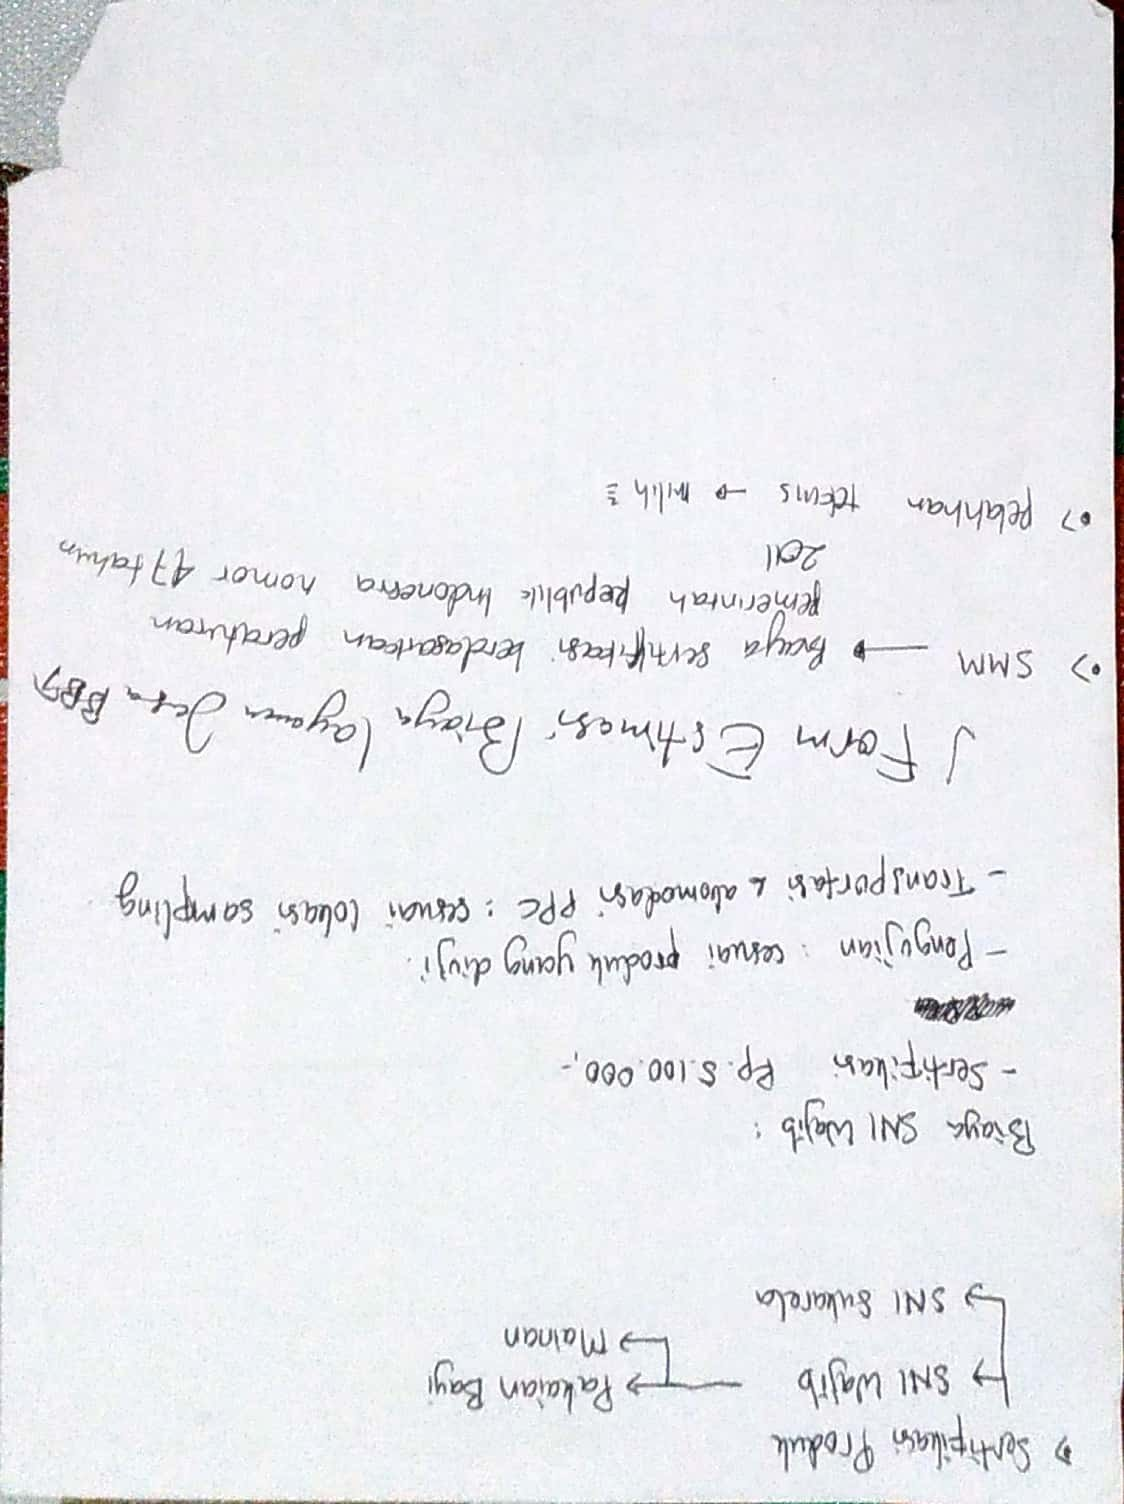 → Sertifikasi Produk
→ SNI Wajib → Pakaian Bayi
→ Mainan
→ SNI Sukarela
Biaya SNI Wajib :
- Sertifikasi Rp. 5.100.000,-
- Pengujian : sesuai produk yang diuji.
- Transportasi & akomodasi PPC : sesuai lokasi sampling
√ Form Estimasi Biaya Layanan Jasa BBT
•> SMM → Biaya sertifikasi berdasarkan peraturan
pemerintah Republik Indonesia nomor 47 tahun
2011
•> pelatihan teknis → milih